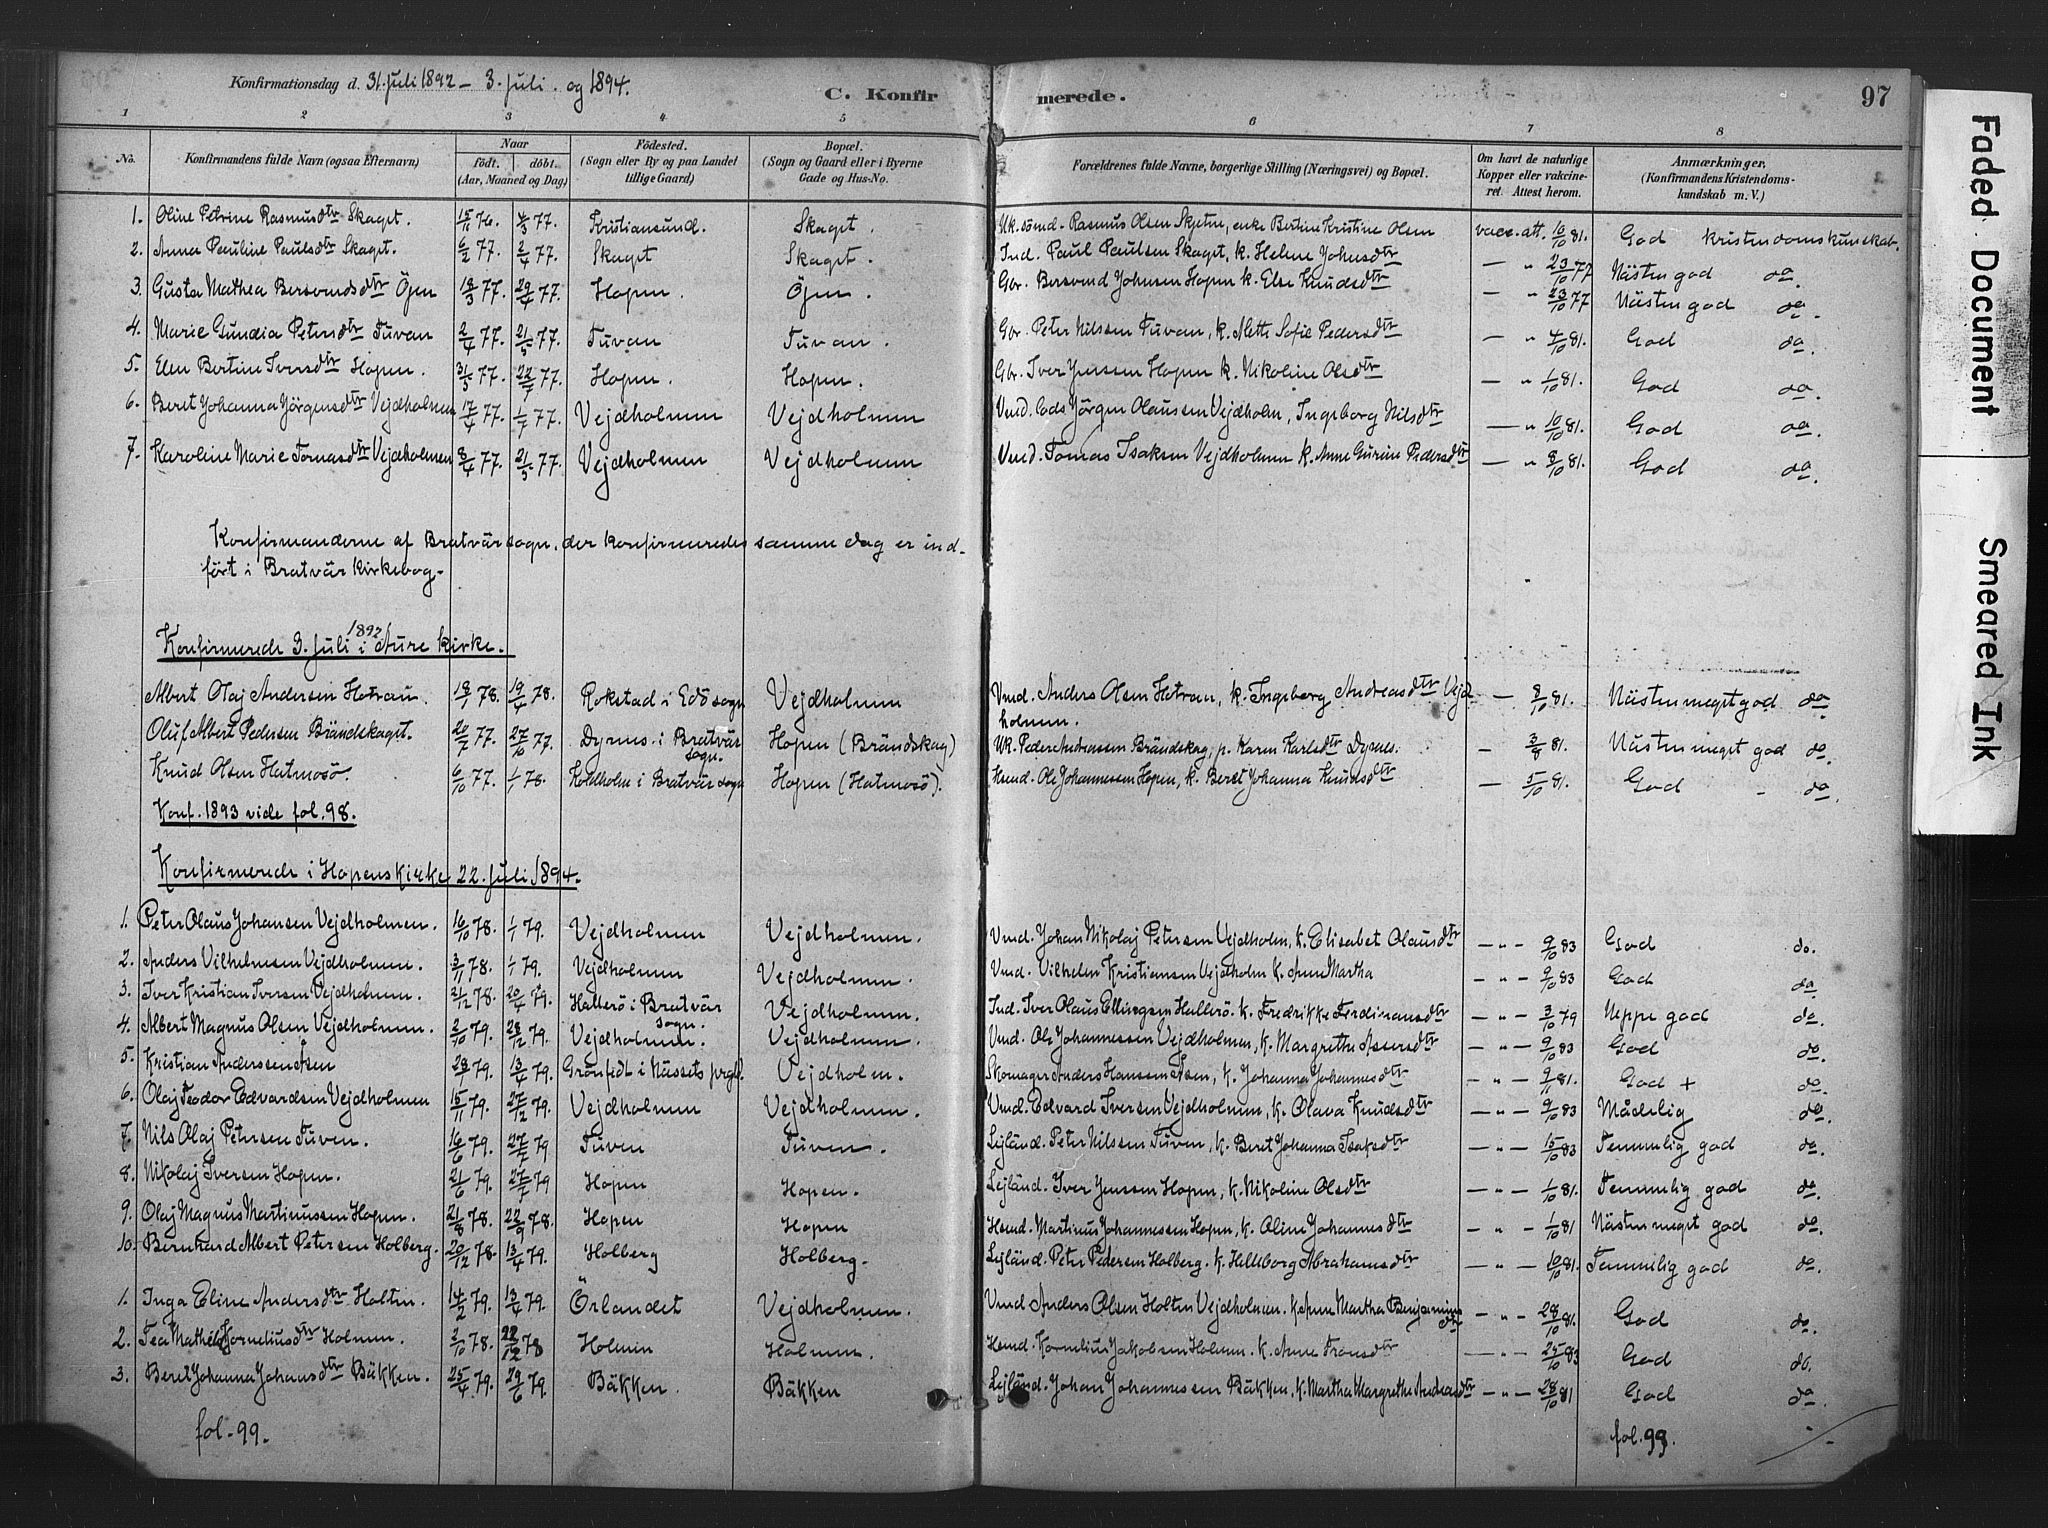 Konfirmationsdag d. 31. Juli 1892 - 3. Juli. og 1894.
C. Konfirmerede.
97
1 2 3 4 5 6 7 8
No. Konfirmandens fulde Navn (ogsaa Efternavn) Naar födt. döbt. (Aar, Maaned og Dag) Födested. (Sogn eller By og paa Landet tillige Gaard) Bopæl. (Sogn og Gaard eller i Byerne Gade og Hus-No. Forældrenes fulde Navne, borgerlige Stilling (Næringsvei) og Bopæl. Om havt de naturlige Kopper eller vakcineret. Attest herom. Anmærkninger. (Konfirmandens Kristendomskundskab m. V.)
1. Oline Petrine Rasmusdtr Skaget. 15/11 76. 4/3 77. Kristiansund. Skaget. Uk. sömd. Rasmus Olsen Skjetne, enke Bertine Kristine Olsen vacc. att. 10/10 81. God kristendomskunskab.
2. Anna Pauline Paulsdtr Skaget. 6/2 77. 2/4 77. Skaget Skaget. Ind. Paul Paulsen Skaget, k. Helene Johnsdtr — " 23/10 77 Nästen god do.
3. Gusta Mathea Bersvendsdtr Öjen 19/3 77. 29/4 77. Hopen. Öjen. Gbr. Bersvend Johnsen Hopen k. Else Knudsdtr — " 23/10 77 Nästen god do.
4. Marie Gundia Petersdtr Tuvan 2/4 77. 21/5 77. Tuvan Tuvan. Gbr. Peter Nilssen Tuvan, k. Mett Sofie Pedersdtr — " 4/10 81. God do.
5. Elen Bertine Iversdtr Hopen. 31/5 77. 22/7 77. Hopen. Hopen. Gbr. Iver Jenssen Hopen k. Nikoline Olsdtr — " 1/10 81. God do.
6. Beret Johanna Jörgensdtr Vejdholmen 17/4 77. 1/7 77. Vejdholmen Vejdholmen Vmd. Jörgen Olaussen Vejdholm, Ingeborg Nilsdtr — " 10/10 81. God do.
7. Karoline Marie Tomasdtr Vejdholmen 8/4 77. 21/5 77. Vejdholmen Vejdholmen Vmd. Tomas Isaksen Vejdholmen k. Anne Gurine Pedersdtr — " 8/10 81. God do.
Konfirmanderne af Bratvär sogn, der konfirmeredes samme dag er ind-
fört i Bratvär kirkebog-
Konfirmerede 3. Juli 1892 i Aure kirke.
Albert Olaj Andersen Hotran. 18/1 78. 19/4 78. Rokstad i Edö sogn Vejdholmen Vmd. Anders Olsen Hotran, k. Ingeborg Andreasdtr Vejdholmen. — 8/10 81. Nästen meget god do.
Oluf Albert Pedersen Brändskaget. 20/7 77. 27/10 77. Dyrnes i Bratvär sogn. Hopen (Brändskag) Uk. Peder Andreassen Brändskag, p. Karen Karlsdtr Dyrnes. — 3/8 81. Nästen meget god do.
Knud Olsen Hatmosö. 6/10 77. 1/1 78. Koldholm i Bratvär sogn Hopen (Hatmosö). Hsmd. Ole Johannessen Hopen, k. Beret Johanna Knudsdtr — 5/10 81. God do.
Konf. 1893 vide fol. 98.
Konfirmerede i Hopens Kirke 22. Juli 1894.
1. Peter Olaus Johansen Vejdholmen. 16/10 78. 1/1 79. Vejdholmen Vejdholmen. Vmd. Johan Nikolaj Petersen Vejdholm, k. Elisabet Olausdtr — " — 9/10 83 God do.
2. Anders Vilhelmsen Vejdholmen. 3/11 78. 1/1 79. Vejdholmen Vejdholmen. Vmd. Vilhelm Kristiansen Vejdholm k. Anne Martha — " — 9/10 83 God do.
3. Iver Kristian Iversen Vejdholmen. 21/12 78. 20/4 79. Hallerö i Bratvär sogn. Vejdholmen. Ind. Iver Olaus Ellingsen Hallerö. k. Fredrikke Ferdinansdtr — " — 3/10 79 Neppe god do.
4. Albert Magnus Olsen Vejdholmen. 2/10 79. 28/12 79. Vejdholmen. Vejdholmen. Vmd. Ole Johannessen Vejdholmen, k. Margrethe Assersdtr — " — 9/10 83 God do.
5. Kristian Anderssen Åsen 29/1 79. 13/4 79. Grönfedt i Nässets prgl. Vejdholm. Skomager Anders Hanssen Åsen, k. Johanna Johannesdtr — " — 9/11 81. God + do.
6. Olaj Teodor Edvardsen Vejdholmen 15/11 79. 27/12 79. Vejdholmen Vejdholmen. Vmd. Edvard Iversen Vejdholmen, k. Olava Knudsdtr — " — 9/10 83 Mådelig do.
7. Nils Olaj Petersen Tuven. 16/6 79. 27/7 79 Tuven Tuven. Lejländ. Peter Nilssen Tuven, k. Beret Johanna Isaksdtr — " — 15/10 83 Temmelig god do.
8. Nikolaj Iversen Hopen. 21/6 79. 27/7 79 Hopen Hopen. Lejländ. Iver Jenssen Hopen, k. Nikoline Olsdtr — " — 1/10 81. Temmelig god do.
9. Olaj Magnus Martinussen Hopen. 21/8 78. 22/9 78. Hopen Hopen Hsmd. Martinus Johannessen Hopen, k. Oline Johannesdtr — " — 1/10 81 Nästen meget god do.
10. Bernhard Albert Petersen Holberg. 20/12 78. 13/4 79. Holberg Holberg. Lejländ. Peter Pedersen Holberg. k. Helleborg Abrahamsdtr — " — 10/10 81. Temmelig god do.
1. Inga Eline Andersdtr Holtin. 14/2 79. 13/4 79. Örlandet Vejdholmen. Vmd Anders Olsen Holten Vejdholmen. k. Anne Martha Benjamins dtr — " — 28/10 81. God do.
2. Tea Mathilde Korneliusdtr Holmen. 2/10 78. 22/12 78 Holmen Holmen. Hsmd. Kornelius Jakobsen Holmen. k. Anne Fransdtr — — — 25/10 83 God do.
3. Beret Johanna Johansdtr Bäkken. 25/4 79. 29/6 79. Bäkken. Bäkken Lejländ. Johan Johannessen Bäkken, k. Martha Margrethe Andreasdtr — " — 28/10 81 God do.
fol. 99. fol. 99.
Faded Document
Smeared Ink